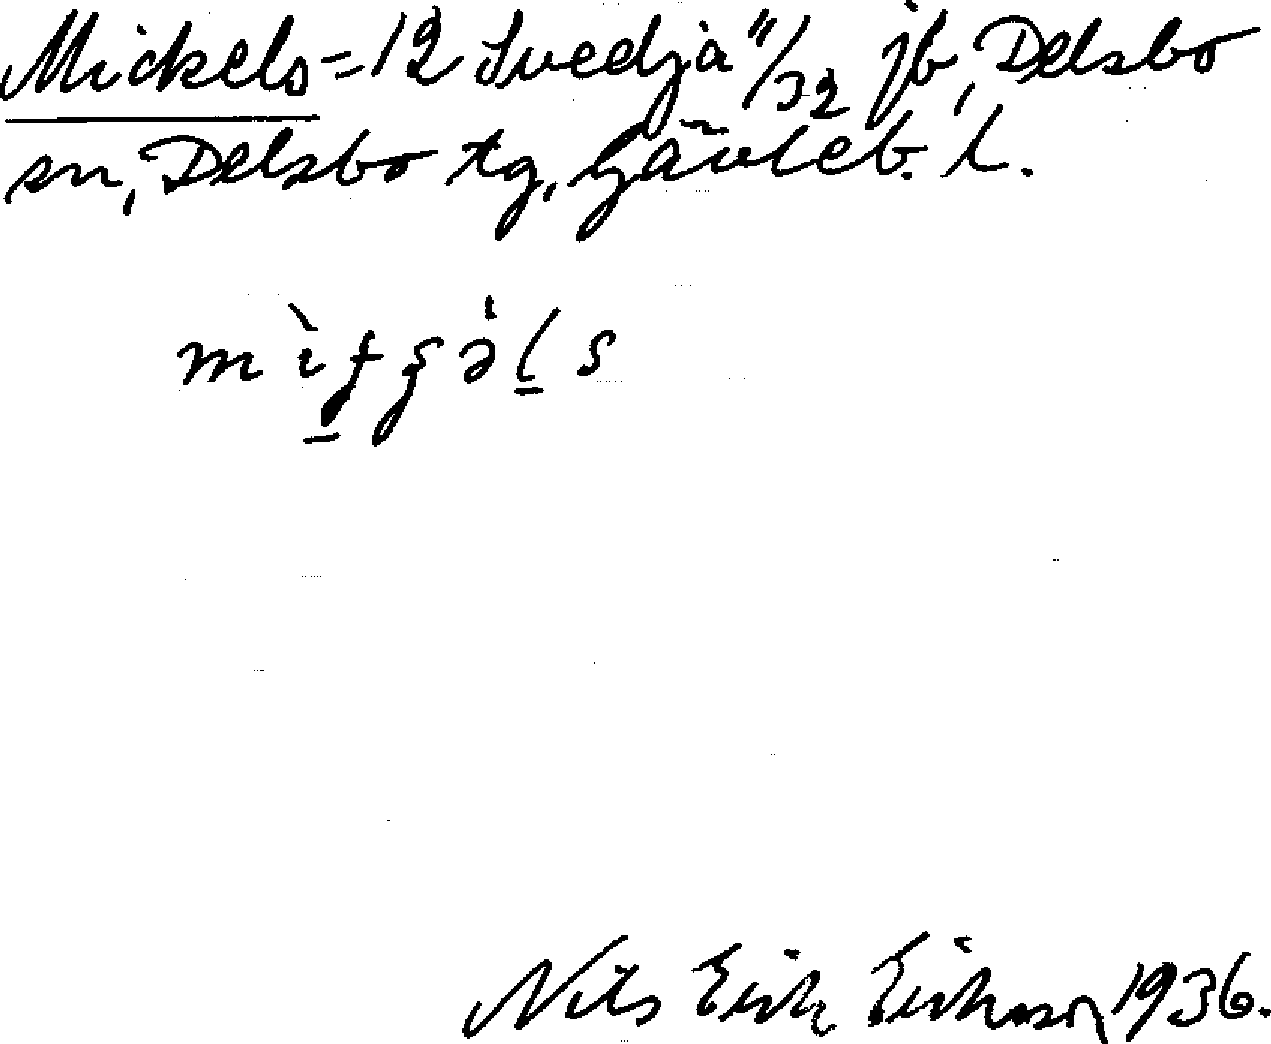 Mickels = 12 Svedja 11/32 jb, Delsbo
sn, Delsbo tg, Gävleb. l.
Nils Erik Eriksson 1936.